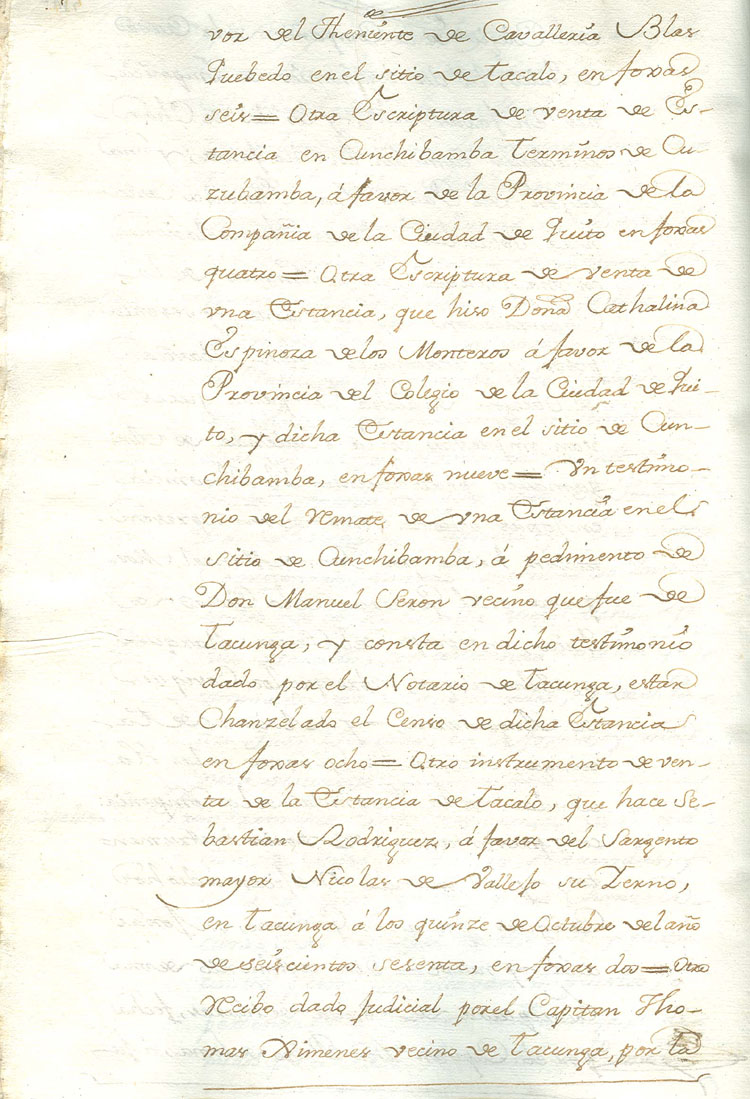 vor del Theniente de Cavalleria Blas
Quebedo en el sitio de Tacalo, en foxas
seis = Otra Escriptura de venta de Es-
tancia en Cunchibamba Terminos de Cu
zubamba, á favor de la Provincia de la
Compañia de la Ciudad de Quito en foxas
quatro = Otra Escriptura de venta de
vna Estancia, que hiso Doña Cathalina
Espinoza delos Monteros á favor de la
Provincia del Colegio de la Ciudad de Qui-
to, y dicha Estancia en el sitio de Cun-
chibamba, en foxas nueve = Vn testimo-
nio del Remate de vna Estancia en el
sitio de Cunchibamba, á pedimento de
Don Manuel Seron vecino que fue de
Tacunga, y consta en dicho testimonio
dado por el Notario de Tacunga, estar
Chanzelado el Censo de dicha Estancia
en foxas ocho = Otro instrumento de ven-
ta de la Estancia de Tacalo, que hace Se-
bastian Rodriguez, á favor del Sargento
mayor Nicolas de Vallejo su Yerno,
en Tacunga á los quinze de Octubre del año
de seiscientos sesenta, en foxas dos = Otro
Recibo dado Judicial por el Capitan Tho-
mas Ximenes vecino de Tacunga, por la